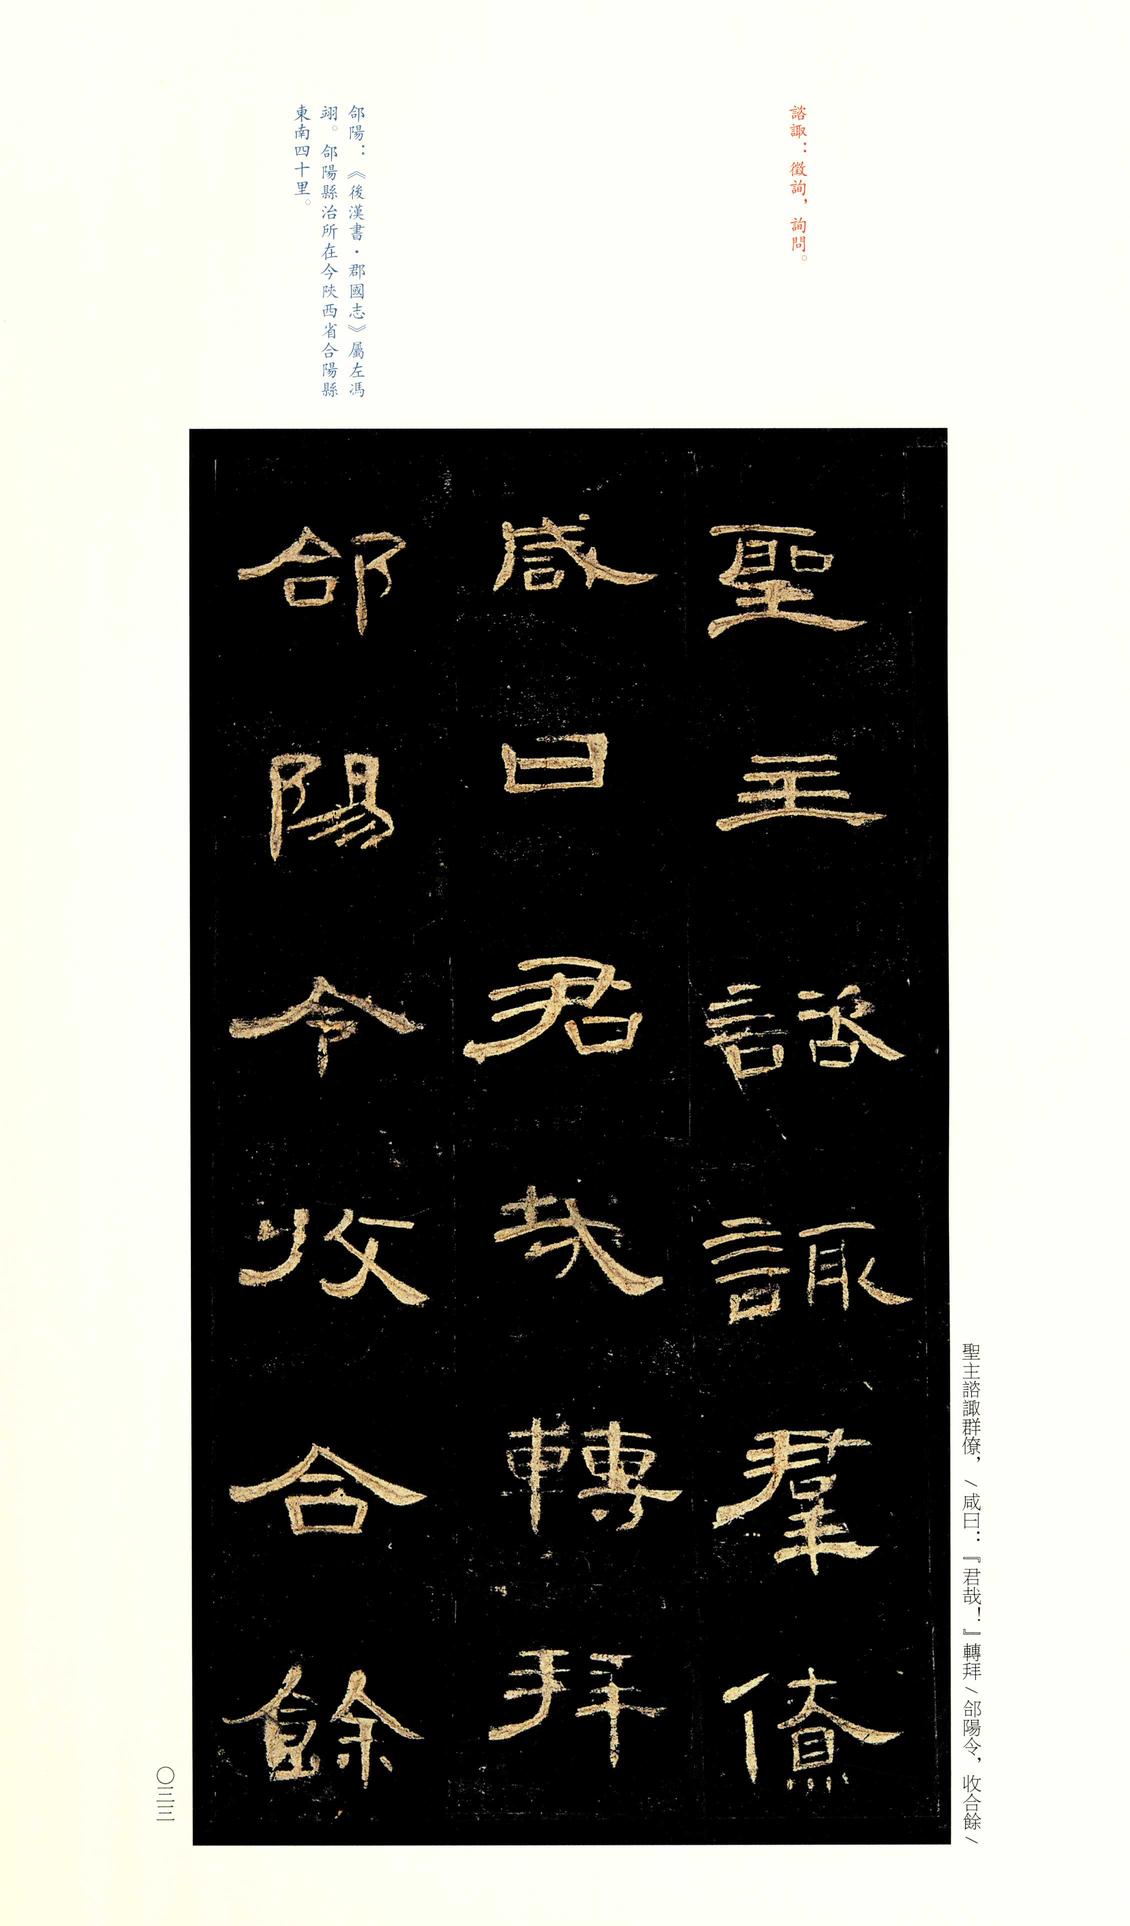 諮諏：徵詢，詢問。
郃陽：《後漢書·郡國志》屬左馮
翊。郃陽縣治所在今陝西省合陽縣
東南四十里。
聖主諮諏羣僚
咸曰君哉轉拜
郃陽令收合餘
聖主諮諏群僚，/咸曰：『君哉！』轉拜/郃陽令，收合餘/
〇三三